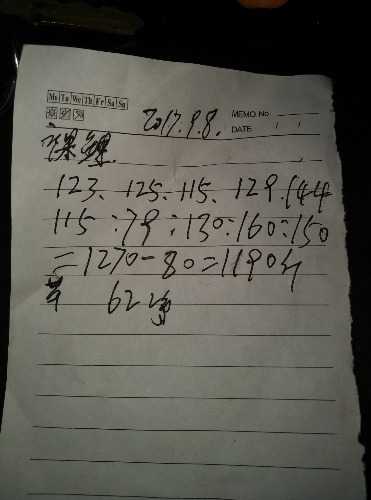 Mo Tu We Th Fr Sa Su
2017.9.8.
MEMO No.
DATE / /
123. 125. 115. 129. 144
115 : 79 : 130 : 160 : 150
=1270-80=1190斤
62净